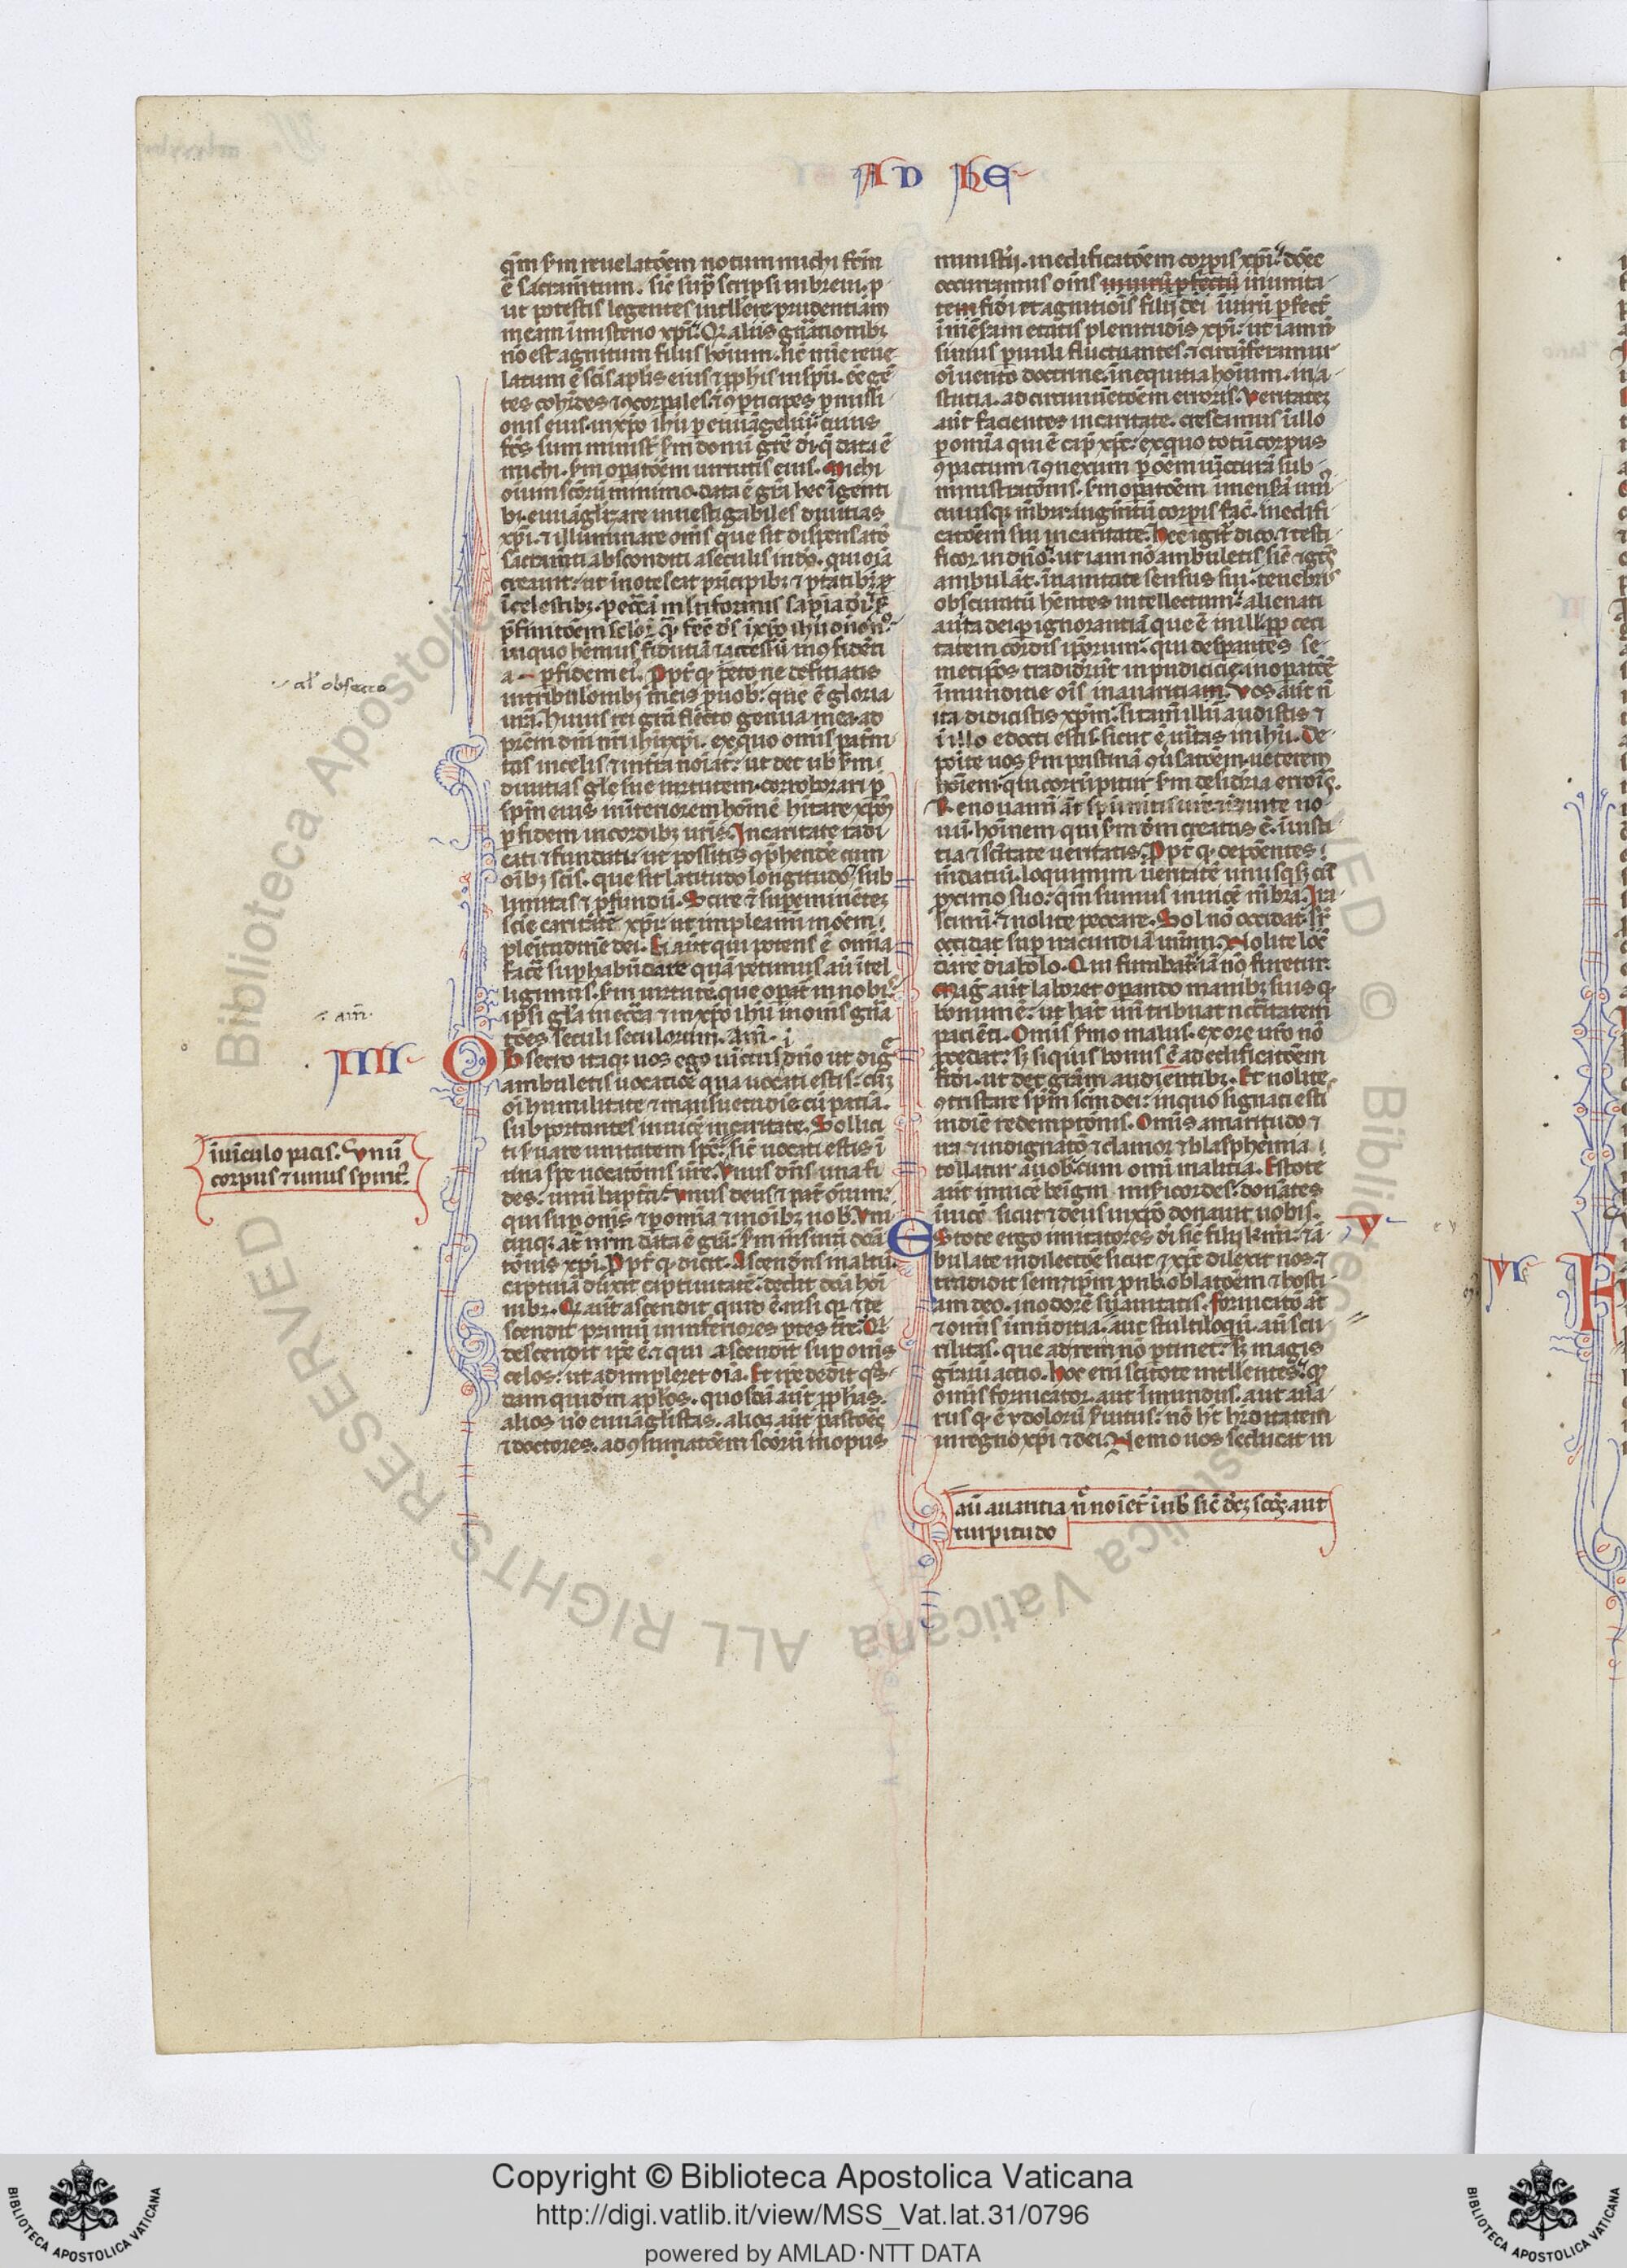 AD hE
qm̅ scdm reuelatōem notum michi fcm̄
ē sacram̄tum. sic̄ sup̄ scripsi in breui. p̄
ut potestis legentes intlle̅re prudentiam
meam ī misterio xpī. Qd aliis gn̄atiōnibꝫ
nō est agnitum filiis hoīum. sic̄ nūc reue
latum ē sc̄is aplīs eius ⁊ ꝓphīs in spū. eē gē
tes coh̄redes ⁊ ꝯcorꝑales. ⁊ ꝯꝑticipes ꝓmissi
onis eius. in xpō ihū ꝑ euāgeliū: cuius
fcs̄ sum minist̄ scdm donū grē dī q̄ data ē
michi. scdm oꝑatōem uirtutis eius. Michi
oīum sc̄orū minimo. data ē grā hec ī genti
bꝫ. euāglizare inuestigabiles diuitias
xpī. ⁊ illuminare om̄s que sit dispensatō
sacram̄ti absconditi a seculis in dō. qui oīa
creauit: ut īnotescat principibꝫ ⁊ ptatibꝫ
ī celestibꝫ. ꝑ ecc̄am
in quo hēmus fiduciā ⁊ accessū
ꝑ fidem eiꝰ. Ppt̄ qd peto ne deficiatis
al' obsecro
in tribulōnibꝫ meis ꝓ uob: que ē gloria
ur̄a. Huius rei grā flecto genua mea ad
pr̄em dn̄i nr̄i ihū xpī. ex quo omīs patn̄i
tas in celis ⁊ in t̄ra noīat̄: ut det uob scdm
diuitias glē sue uirtutem. corroborari ꝑ
spm̄ eius in īteriorem hoīmē hītare xpm̄
ꝑ fidem in cordibꝫ ur̄is. In caritate radi
cati ⁊ fundati: ut possitis ꝯp̄hendē cum
oībꝫ sc̄is. que sit latitudo longitudo ⁊ sub
limitas ⁊ ꝓfundū. Scire ⁊ suꝑeminētem
sciē caritatē xpī: ut impleamī in oēm
plenitudinē dei. Ei aūt qui potens ē omīa
facē suꝑhabūdāte quā petimus aū ītel
ligimus. scdm uirtutē que oꝑat̄ in nobꝫ.
ip̄si glā in ecc̄a ⁊ in xpō ihū in om̄is gnā
tōes seculi seculorum. Am̄.
am̄.
IIII
OBsecro itaqꝫ uos ego uīctus ī dn̄o ut dig̅
ambuletis uocatiōe qua uocati estis: cū
oī humilitate ⁊ mansuetudīe cū paciā.
subportantes inuicē in caritate. Sollici
ti s̄uare unitatem spc̄. sic̄ uocati estis ī
ī uīculo pacis. Unū
corpus ⁊ unus spirit̄.
una spe uocatōnis ur̄e. Unus dn̄s una fi
des: unū bapt̄a. Unus deus ⁊ pat̄ oīum:
qui suꝑ om̄s ⁊ ꝑ omīa ⁊ in oībꝫ nob. Uni
cuiqꝫ aūt nr̄m data ē grā: scdm mēsurā doā
tōnis xpī. Ppt̄ qd dicit. Ascendēs in altū
captiuā duxit captiuitatē: dedit doā hoī
nibꝫ. Qd aūt ascendit quid ē. nisi qꝫ ⁊ de
scendit primū in inferiores ꝑtes tr̄e. Qi
descendit ip̄e ē ⁊ qui ascendit suꝑ om̄s
celos: ut adimpleret oīa. Et ip̄e dedit qs
dam quidm̄ apl̄os. quosdā aūt ꝓphas.
alios uō euāglistas. alios aūt pastores
⁊ doctores. ad ꝯsumatōem sc̄orū in opus
ministrij. in edificatōem corꝑis xpī: donec
occurramus om̄s in unita
tem fidei et agnitiōis filij dei in uirū ꝑfect̄
in mēsuram etatis plenitudīs xpī: ut iam n̄
simus paruuli fluctuantes. ⁊ circūferamur
oī uento doctrine. in nequitia hoīum. in a
stutia. ad circumuentōem erroris. Ueritatem
aūt facientes in caritate. crescamus in illo
ꝑ omīa qui ē cap̄ xpc̄: ex quo totū corpus
ꝯpactum ⁊ ꝯnexum ꝑ oēm iūcturā sub
ministratōnis. scdm oꝑatōem ī mensurā uni
cuiusqꝫ mēbri: augm̄tū corꝑis fac̄. in edifi
catōem sui in caritate. Hoc igit̄ dico. ⁊ testi
ficor in dn̄o: ut iam nō ambuletis sic̄ ⁊ gētes
ambulāt. in uanitate sensus sui. tenebris
obscuratū hn̄tes intellectum. alienati
a uita dei ꝑ ignorantiā que ē in illꝭ. ꝓp̄ ceci
tatem cordis ip̄orum: qui desꝑantes se
metip̄os tradidērūt inpudicicie. in oꝑatōe
īmundicie oīs in auariciam. Uos aūt n̄
ita didicistis xpm̄: si tam̄ illū audistis ⁊
ī illo edocti estis. sicut ē ūitas in ihū. De
poīte uos scdm pristinā ꝯūsatōem. ueterem
hoīem. qui corrūpitur scdm desideria erroīs.
Renouamī aūt spū mētis ur̄e. ⁊ īduite no
uū hoīnem qui scdm dm̄ creatus ē. ī iusti
tia ⁊ scītate ueritatis. Ppt̄ qd deponentes
mendatiū. loquimini ueritatē unusqꝫ cū
ꝓximo suo: qm̄ sumus inuicē mēbra. Ira
scimī ⁊ nolite peccare. Sol nō occidat
occidat suꝑ iracundiā ur̄am. Nolite locū
dare diabolo. Qui furabat̄ iā nō furetur.
Mag̅ aūt laboret oꝑando manibꝫ suis qd
bonum ē: ut hāt un̄ tribuat nc̄citatem
pacienti. Omīs s̄mo malus. ex ore ur̄o nō
ꝓcedat: sꝫ siquis bonus ē ad edificatōem
fidei. ut det grām audientibꝫ. Et nolite
ꝯtristare spm̄ scm̄ dei: in quo signati esti
in diē redemptōnis. Omīs amaritudo ⁊
ira ⁊ indignatō ⁊ clamor ⁊ blasphemia
tollatur a uob. cum omī malitia. Estote
aūt inuicē beigni misericordes. donātes
inuicē sicut ⁊ deus in xpō donauit uobis.
V
Estote ergo imitatores dī sic̄ filij karīmi: ⁊ ā
bulate in dilectōe sicut ⁊ xpc̄ dilexit nos. ⁊
tradidit semetip̄m ꝓ nob. oblatōem ⁊ hosti
am deo. in odorē suauitatis. Fornicatō aūt
⁊ omīs īmūditia. aut stultiloqū. aū scu
rilitas. que ad rem nō ꝑtinet: sꝫ magis
grārū actio. Hoc enī scitote intllentes. qꝫ
omīs fornicator. aut īmundus. aut aua
rus qd ē ydolorū s̄uitus: nō ht̄ hereditatem
in regno xpī ⁊ dei. Nemo uos seducat in
aū auaritia n̄ noīet̄ ī uob sic̄ decet sc̄os. aut
turpitudo
VI
Biblioteca Apostolica Vaticana ALL RIGHTS RESERVED ©
Copyright © Biblioteca Apostolica Vaticana
http://digi.vatlib.it/view/MSS_Vat.lat.31/0796
powered by AMLAD·NTT DATA
BIBLIOTECA APOSTOLICA VATICANA
BIBLIOTECA APOSTOLICA VATICANA